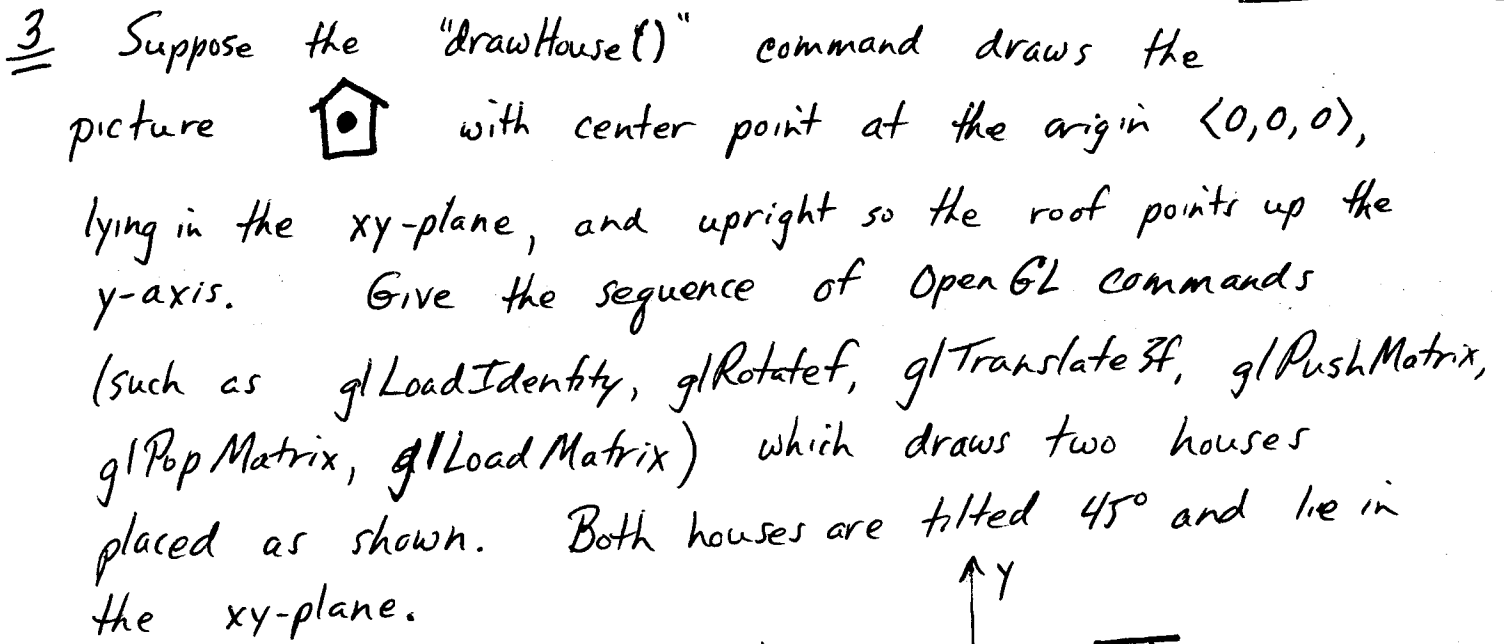 3 Suppose the "drawHouse()" command draws the
picture with center point at the origin <0,0,0>,
lying in the xy-plane, and upright so the roof points up the
y-axis. Give the sequence of OpenGL commands
(such as glLoadIdentity, glRotatef, glTranslate3f, glPushMatrix,
glPopMatrix, glLoadMatrix) which draws two houses
placed as shown. Both houses are tilted 45° and lie in
the xy-plane.
Y